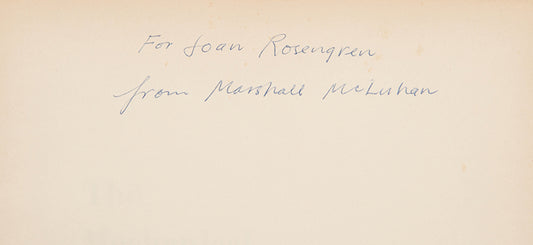 For Joan Rosengren
from Marshall McLuhan